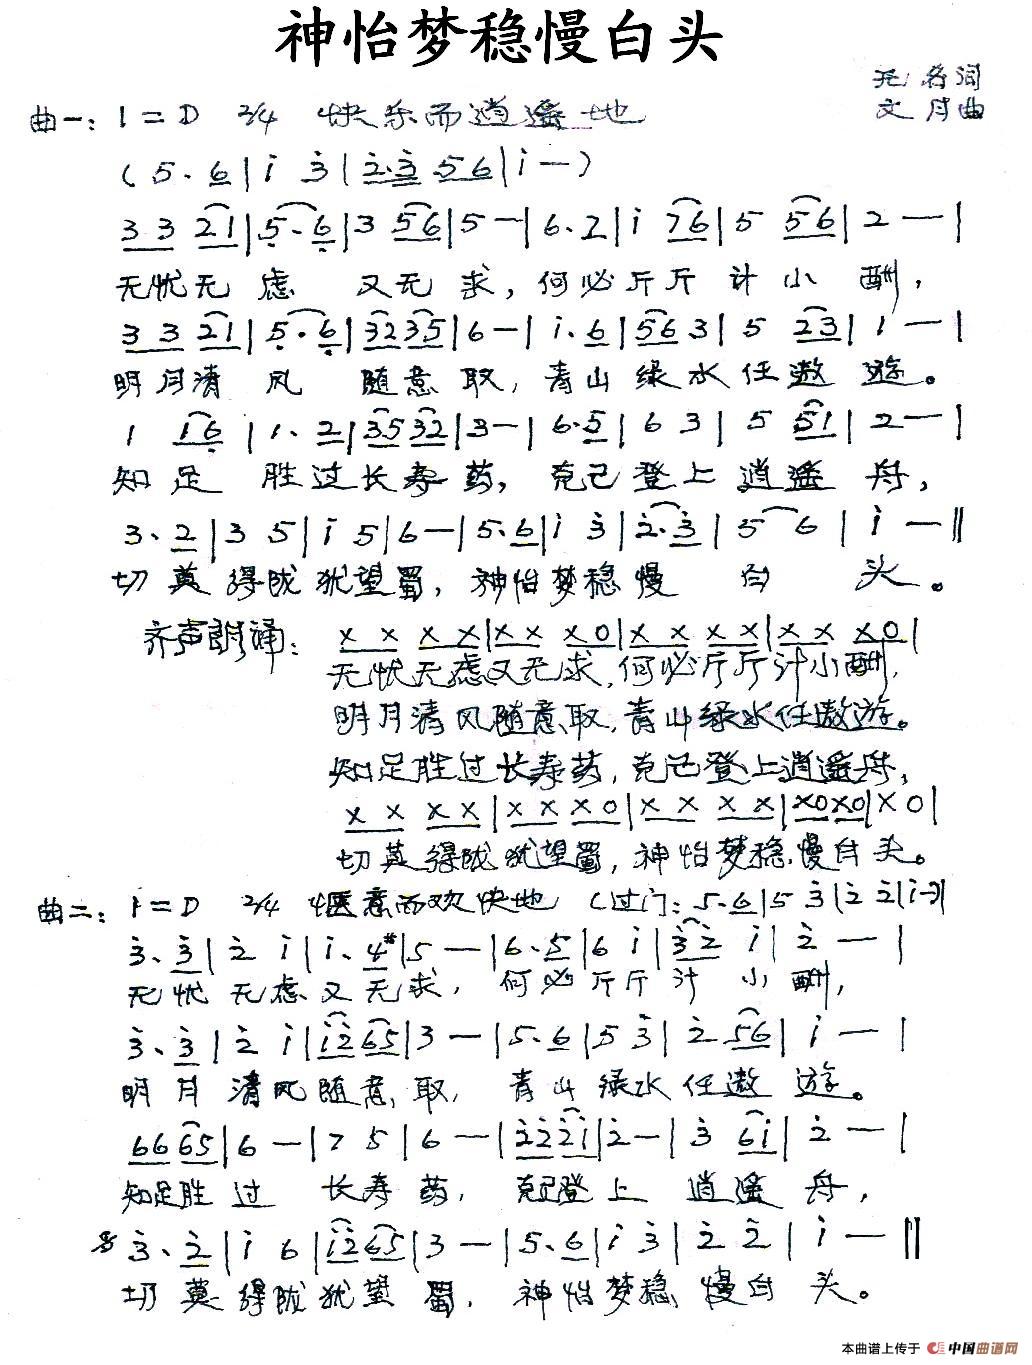 神怡梦稳慢白头
无名词
文月曲
曲一：1=D 2/4 快乐而逍遥地
(5. 6|i 3|2.3 56|i —)
3 3 21|5. 6|3 56|5 —|6. 2|i 76|5 56|2 —|
无忧无虑 又无求，何必斤斤计小酬，
3 3 21|5. 6|32 35|6 —|i. 6|56 3|5 23|1 —|
明月清风 随意取，青山绿水任遨游。
1 16|1. 2|35 32|3 —|6. 5|6 3|5 51|2 —|
知足 胜过长寿药，克己登上逍遥舟，
3. 2|3 5|i 5|6 —|5. 6|i 3|2. 3|5 6|i —‖
切莫得陇犹望蜀，神怡梦稳慢 白 头。
齐声朗诵：x x x x|x x x 0|x x x x|x x x 0|
无忧无虑又无求，何必斤斤计小酬，
明月清风随意取，青山绿水任遨游。
知足胜过长寿药，克己登上逍遥舟，
x x x x|x x x 0|x x x x|x0 x0|x 0|
切莫得陇犹望蜀，神怡梦稳慢白头。
曲二：1=D 2/4 惬意而欢快地 (过门：5. 6|5 3|2 2|i —)|
3. 3|2 i|i. 4#|5 —|6. 5|6 i|32 i|2 —|
无忧无虑又无求，何必斤斤计小酬，
3. 3|2 i|i2 65|3 —|5. 6|5 3|2 56|i —|
明月清风随意取，青山绿水任遨游。
66 65|6 —|7 5|6 —|22 2i|2 —|3 6i|2 —|
知足胜过 长寿药，克己登上逍遥舟，
3. 2|i 6|i2 65|3 —|5. 6|i 3|2 2|i —‖
切莫得陇犹望蜀，神怡梦稳慢白头。
本曲谱上传于 中国曲谱网